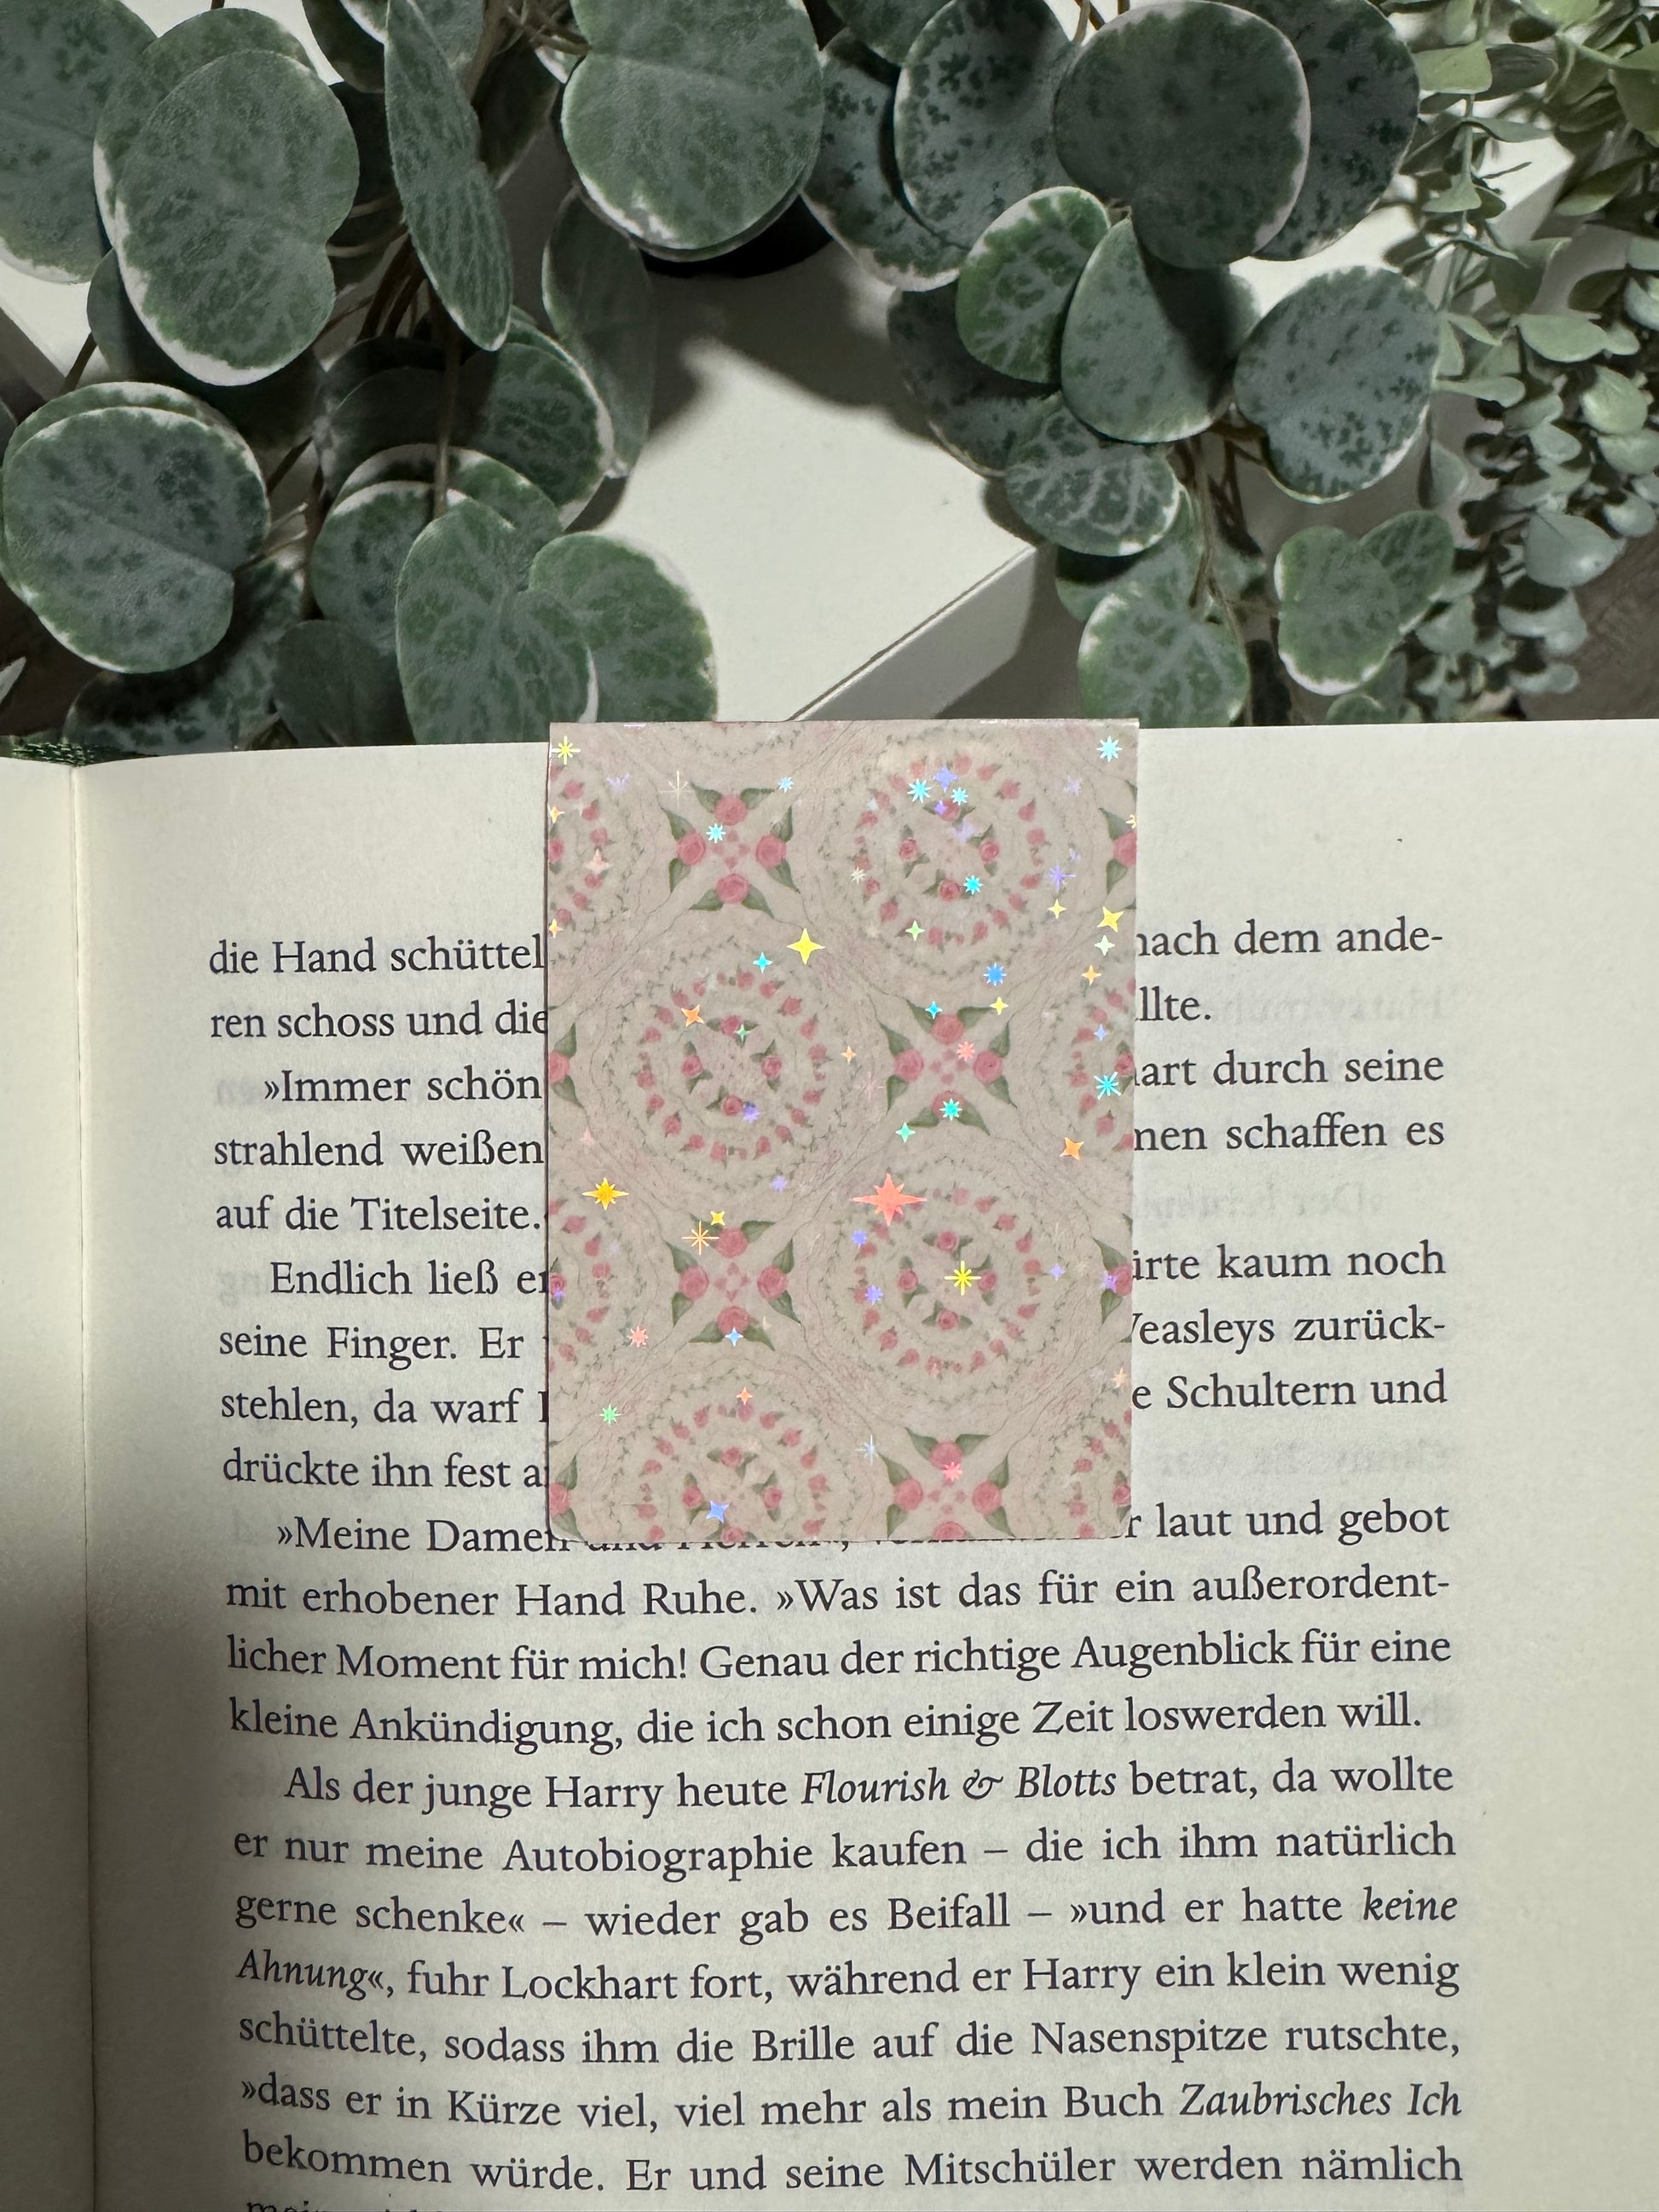 die Hand schüttel nach dem ande-
ren schoss und die llte.
»Immer schön art durch seine
strahlend weißen men schaffen es
auf die Titelseite.
Endlich ließ er rte kaum noch
seine Finger. Er easleys zurück-
stehlen, da warf e Schultern und
drückte ihn fest a
»Meine Damen und Herren«, r laut und gebot
mit erhobener Hand Ruhe. »Was ist das für ein außerordent-
licher Moment für mich! Genau der richtige Augenblick für eine
kleine Ankündigung, die ich schon einige Zeit loswerden will.
Als der junge Harry heute Flourish & Blotts betrat, da wollte
er nur meine Autobiographie kaufen – die ich ihm natürlich
gerne schenke« – wieder gab es Beifall – »und er hatte keine
Ahnung«, fuhr Lockhart fort, während er Harry ein klein wenig
schüttelte, sodass ihm die Brille auf die Nasenspitze rutschte,
»dass er in Kürze viel, viel mehr als mein Buch Zaubrisches Ich
bekommen würde. Er und seine Mitschüler werden nämlich